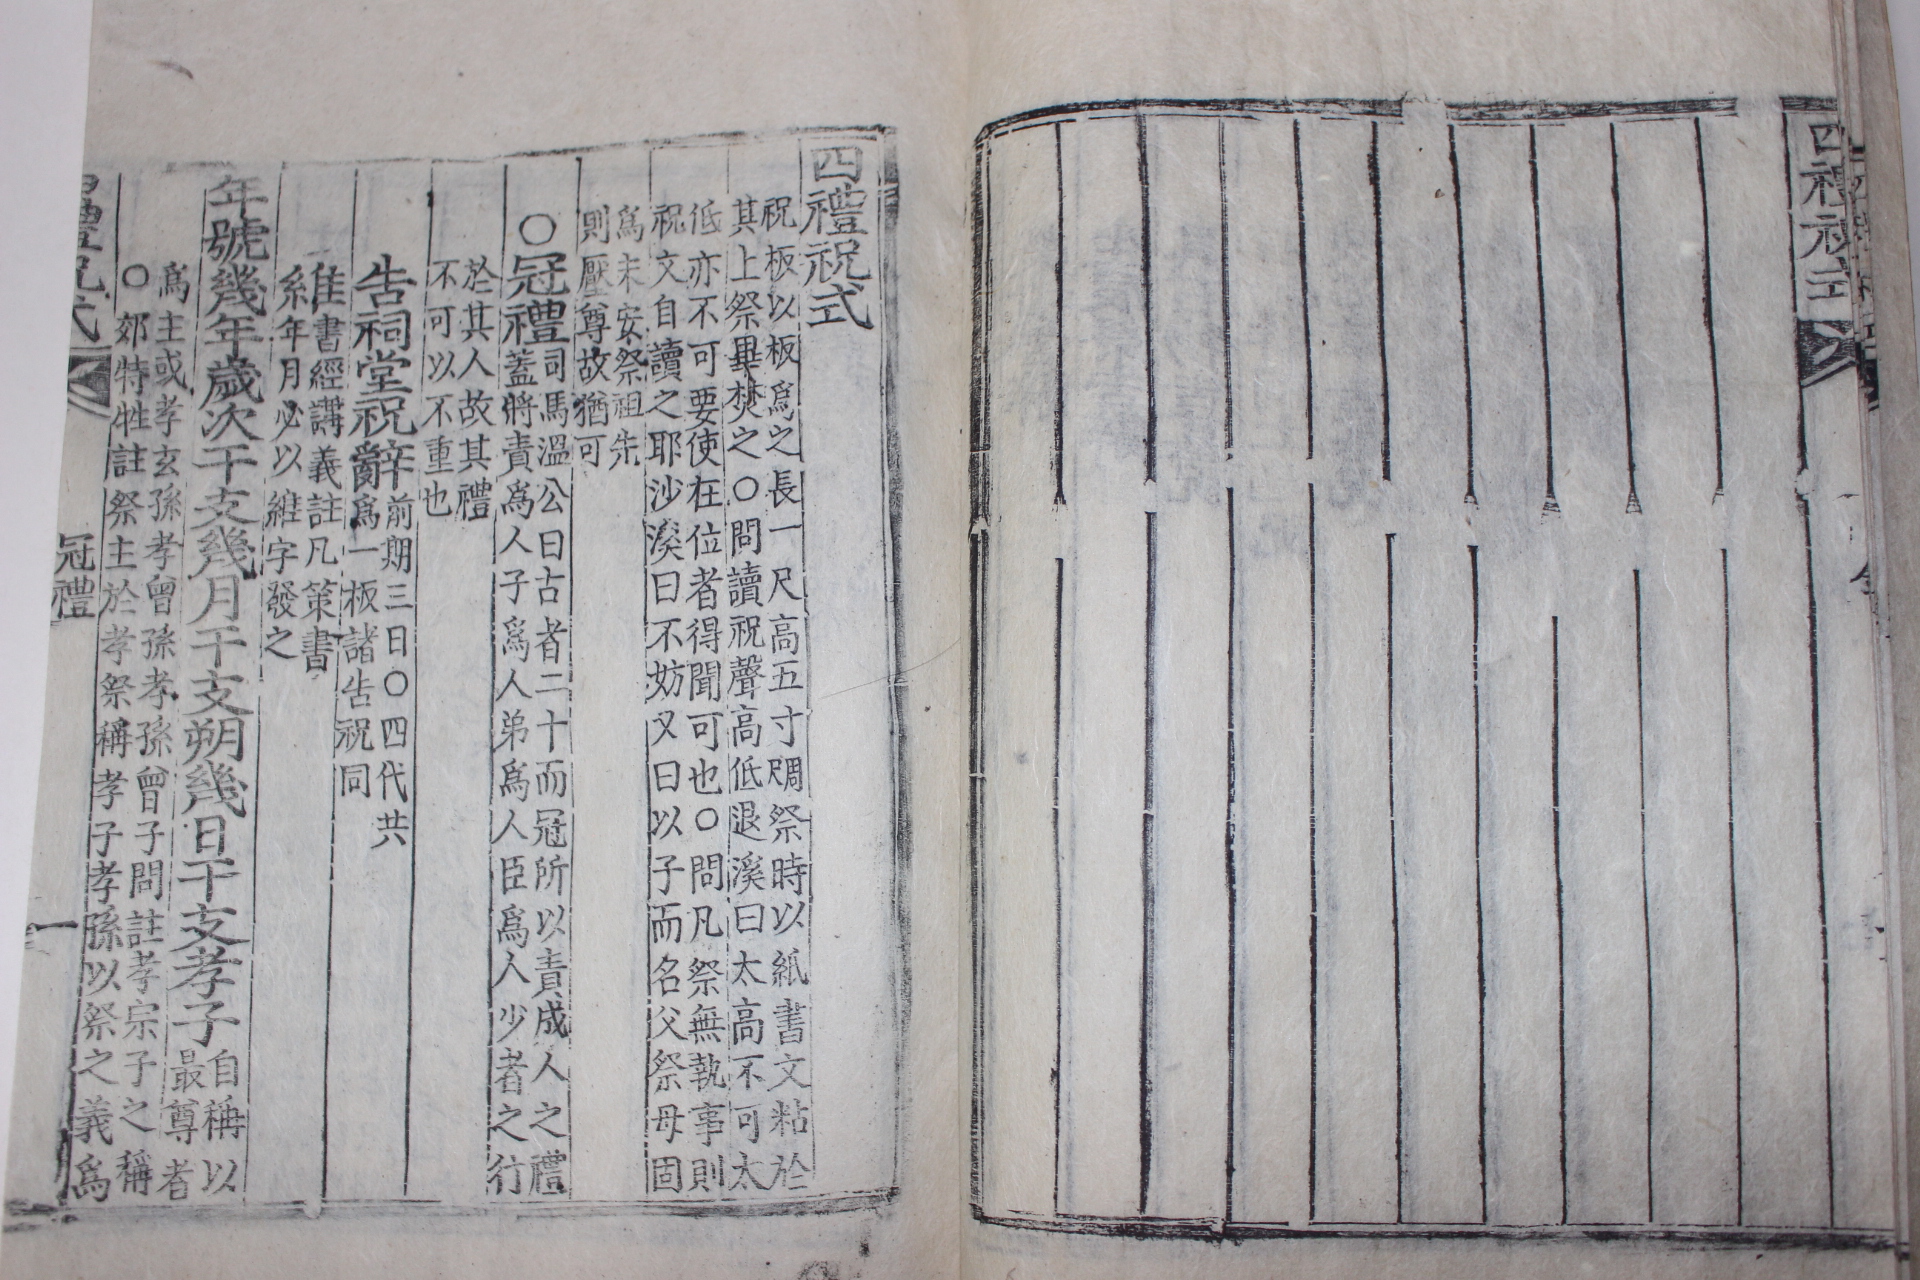 四禮祝式
四禮祝式
祝板以板爲之長一尺高五寸周尺祭時以紙書文粘於
其上祭畢焚之○問讀祝聲高低退溪曰太高不可太
低亦不可要使在位者得聞可也○問凡祭無執事則
祝文自讀之耶沙溪曰不妨又曰以子而名父祭母固
爲未安祭祖先
則壓尊故猶可
○冠禮
司馬溫公曰古者二十而冠所以責成人之禮
蓋將責爲人子爲人弟爲人臣爲人少者之行
於其人故其禮
不可以不重也
告祠堂祝辭
前期三日○四代共
爲一板諸告祝同
維
書經講義註凡策書
系年月必以維字發之
年號幾年歲次干支幾月干支朔幾日干支孝子
自稱以
最尊者
爲主或孝玄孫孝曾孫孝孫曾子問註孝宗子之稱
○郊特牲註祭主於孝祭稱孝子孝孫以祭之義爲
禮祝式
冠禮
一